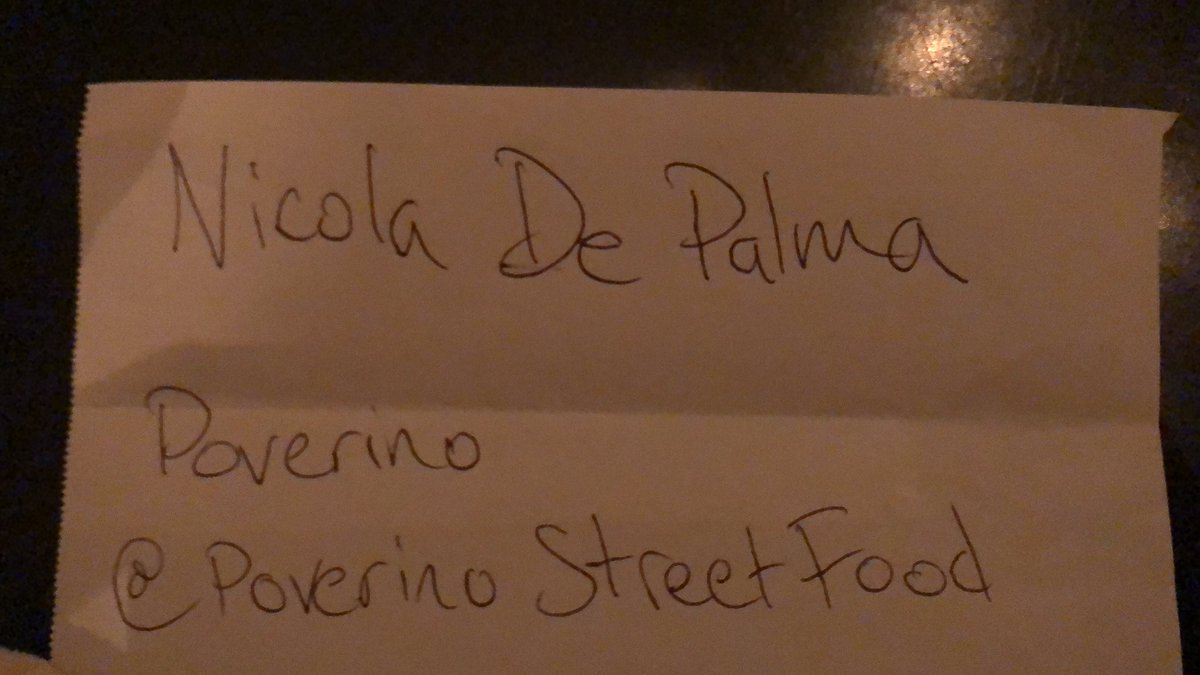 Nicola De Palma
Poverino
@Poverino StreetFood